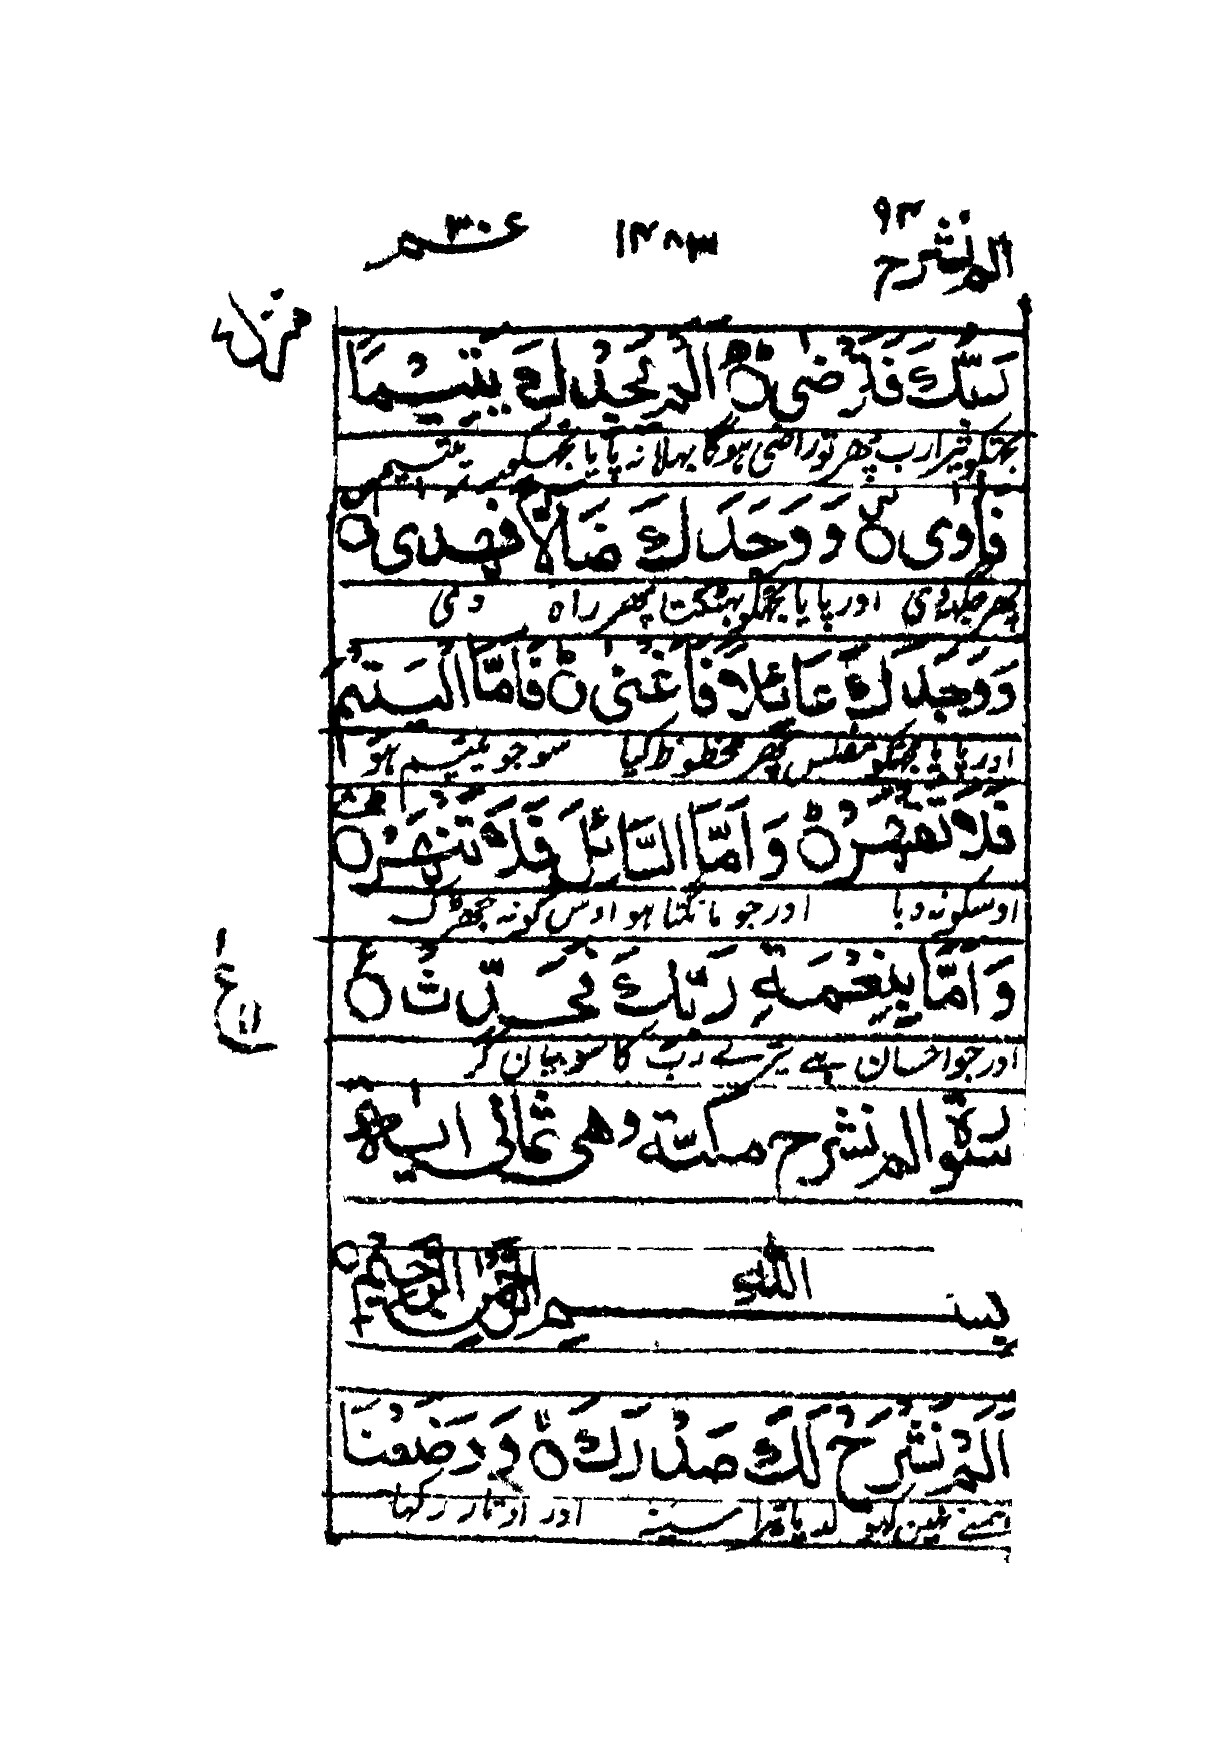 الم نشرح ٩٣
١٣٨٣
عم ٣٠
منزل
رَبُّكَ فَتَرْضٰى ۝ اَلَمْ يَجِدْكَ يَتِيْمًا
تجھکو تیرا رب پھر تو راضی ہوگا بہلا نہ پایا تجھکو یتیم
فَاٰوٰى ۝ وَوَجَدَكَ ضَآلًّا فَهَدٰى ۝
پھر جگہ دی اور پایا تجھکو بھٹکتا پھر راہ دی
وَوَجَدَكَ عَآئِلًا فَاَغْنٰى ۝ فَاَمَّا الْيَتِيْمَ
اور پایا تجھکو مفلس پھر محظوظ کیا سو جو یتیم ہو
فَلَا تَقْهَرْ ۝ وَاَمَّا السَّآئِلَ فَلَا تَنْهَرْ ۝
اوسکو نہ دبا اور جو مانگتا ہو اوس کو نہ جھڑک
وَاَمَّا بِنِعْمَةِ رَبِّكَ فَحَدِّثْ ۝
اور جو احسان ہے تیرے رب کا سو بیان کر
ع ١١
سورة الم نشرح مكية وهي ثماني اٰية
بِسْمِ اللّٰهِ الرَّحْمٰنِ الرَّحِيْمِ ۝
اَلَمْ نَشْرَحْ لَكَ صَدْرَكَ ۝ وَوَضَعْنَا
ہمنے نہیں کھول دیا تیرا سینہ اور اوتار رکھا